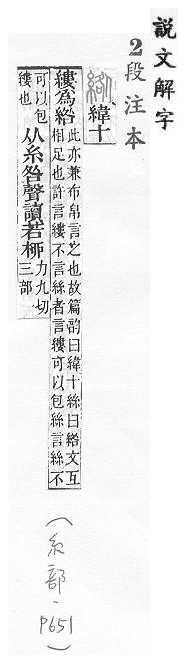 說文解字
2段注本
綹 緯十
縷為綹
此亦兼布帛言之也故篇韵曰緯十絲曰綹文互
相足也許言縷不言絲者言縷可以包絲言絲不
可以包
縷也
从糸咎聲讀若桺
力九切
三部
(糸部、P651)